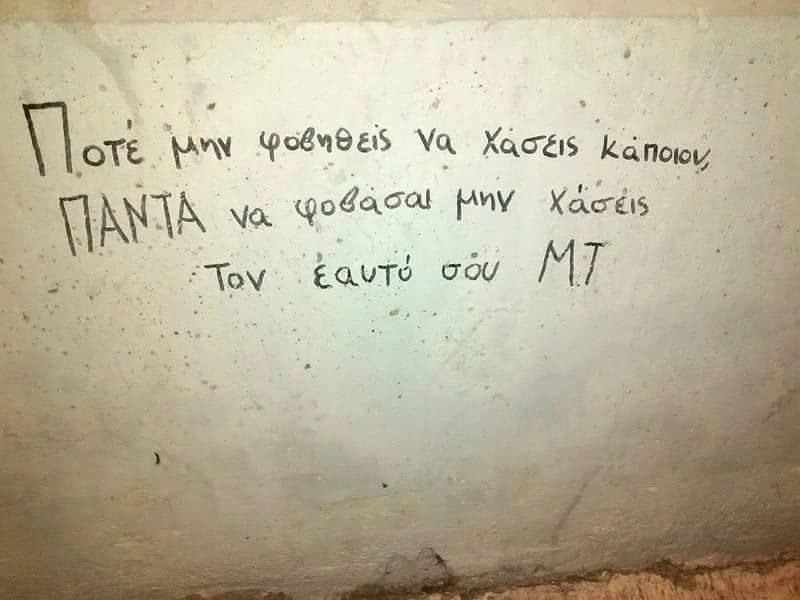 Ποτέ μην φοβηθείς να χάσεις κάποιον,
ΠΑΝΤΑ να φοβάσαι μην χάσεις
τον εαυτό σου Μ.Τ